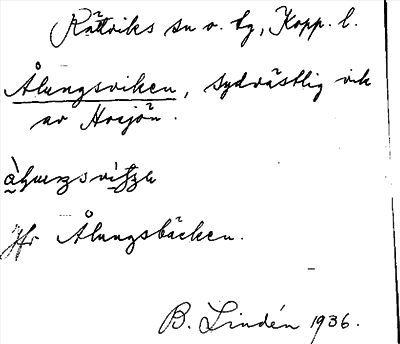 Rättviks sn o. tg, Kopp. l.
Ålungsviken, sydvästlig vik
av Horsjön.
Jfr Ålungsbäcken.
B. Lindén 1936.